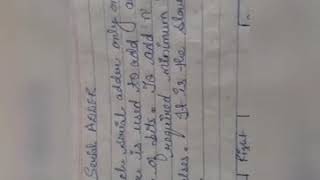 Serial ADDER
the serial adder only on
is used to add
of bits. To add n
required minimum
It is the slow
Right